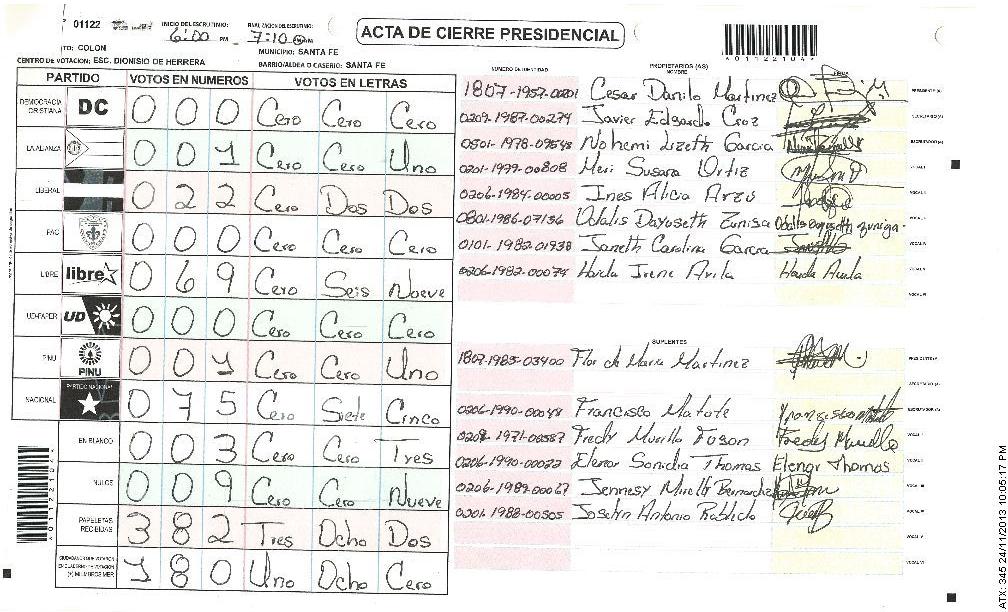 01122 INICIO DEL ESCRUTINIO: 6:00 PM FINALIZACION DEL ESCRUTINIO: 7:10
ACTA DE CIERRE PRESIDENCIAL
*01122104*
TO: COLON MUNICIPIO: SANTA FE
CENTRO DE VOTACION: ESC. DIONISIO DE HERRERA BARRIO/ALDEA O CASERIO: SANTA FE
PARTIDO VOTOS EN NUMEROS VOTOS EN LETRAS
DEMOCRACIA CRISTIANA DC 0 0 0 Cero Cero Cero
LA ALIANZA 0 0 1 Cero Cero Uno
LIBERAL 0 2 2 Cero Dos Dos
PAC 0 0 0 Cero Cero Cero
LIBRE libre 0 6 9 Cero Seis Nueve
UD-FAPER UD 0 0 0 Cero Cero Cero
PINU PINU 0 0 1 Cero Cero Uno
NACIONAL PARTIDO NACIONAL 0 7 5 Cero Siete Cinco
EN BLANCO 0 0 3 Cero Cero Tres
NULOS 0 0 9 Cero Cero Nueve
PAPELETAS RECIBIDAS 3 8 2 Tres Ocho Dos
CIUDADANOS QUE VOTARON EN CUADERNO DE VOTACION (+) MIEMBROS MER 1 8 0 Uno Ocho Cero
*01122104*
NUMERO DE IDENTIDAD PROPIETARIOS (AS) NOMBRE FIRMA
1807-1957-00201 Cesar Danilo Martinez PRESIDENTE (A)
0209-1987-00274 Javier Edgardo Cruz SECRETARIO (A)
0801-1978-09548 Nohemi Lizeth Garcia ESCRUTADOR (A)
0201-1999-00808 Meri Susara Ortiz VOCAL I
0206-1984-00005 Ines Alicia Arzu VOCAL II
0801-1986-07136 Odalis Dayuseth Zunisa Odalis Dayuseth Zuniga VOCAL III
0101-1982-01938 Janeth Carolina Garcia VOCAL IV
0206-1982-00074 Haida Irene Avila Haida Avila VOCAL V
VOCAL VI
SUPLENTES
1807-1985-03400 Flor de Maria Martinez PRESIDENTE (A)
SECRETARIO (A)
0206-1990-00048 Francisco Matute ESCRUTADOR (A)
0209-1971-00587 Fredy Murillo Fredy Murillo VOCAL I
0206-1990-00022 Elenor Sonidia Thomas Elenor Thomas VOCAL II
0206-1989-00067 Jennesy VOCAL III
0201-1988-00505 Joselyn Antonio VOCAL IV
VOCAL V
VOCAL VI
ATX: 345 24/11/2013 10:05:17 PM